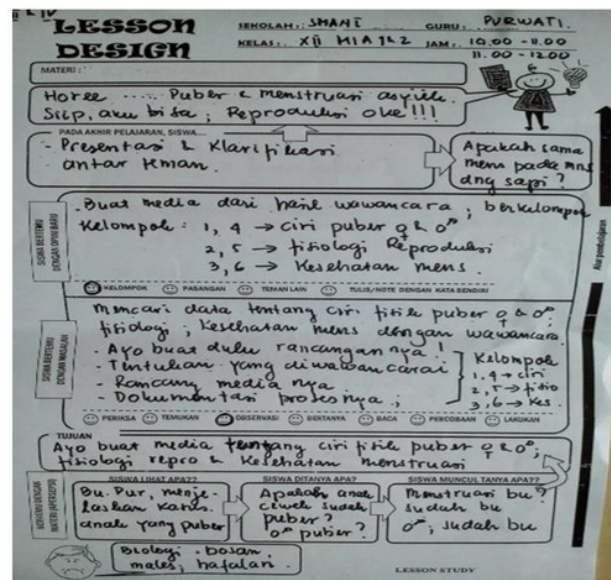 LESSON
DESIGN
SEKOLAH: SMANI GURU: PURWATI.
KELAS: XII MIA 1&2 JAM: 10.00 - 11.00
11.00 - 12.00
MATERI:
Horee .... Puber & menstruasi asyiik.
Siip, aku bisa, Reproduksi oke!!!
PADA AKHIR PELAJARAN, SISWA...
- Presentasi & Klarifikasi
antar teman.
Apakah sama
mens pada mns
dng sapi?
Alur pembelajaran
SISWA BERTEMU
DENGAN OPINI BARU
- Buat media dari hasil wawancara, berkelompok
Kelompok: 1, 4 → ciri puber ♀ & ♂
2, 5 → fisiologi Reproduksi
3, 6 → Kesehatan mens.
KELOMPOK PASANGAN TEMAN LAIN TULIS/NOTE DENGAN KATA SENDIRI
SISWA BERTEMU
DENGAN MASALAH
Mencari data tentang ciri fisik puber ♀ & ♂,
fisiologi, Kesehatan mens dengan wawancara.
- Ayo buat dulu rancangannya!
- Tentukan yang diwawancarai
- Rancang medianya
- Dokumentasi prosesnya,
Kelompok
1, 4 → ciri
2, 5 → fisio
3, 6 → Kes.
PERIKSA TEMUKAN OBSERVASI BERTANYA BACA PERCOBAAN LAKUKAN
TUJUAN
Ayo buat media tentang ciri fisik puber ♀ & ♂,
fisiologi repro & Kesehatan menstruasi
MATERI (APERSEPSI)
SISWA LIHAT APA??
Bu. Pur, menje-
laskan kasus
anak yang puber
SISWA DITANYA APA?
Apakah anak
cewek sudah
puber?
♂ puber?
SISWA MUNCUL TANYA APA??
Menstruasi bu?
sudah bu
♂, sudah bu
Biologi - bosan,
males, hafalan.
LESSON STUDY